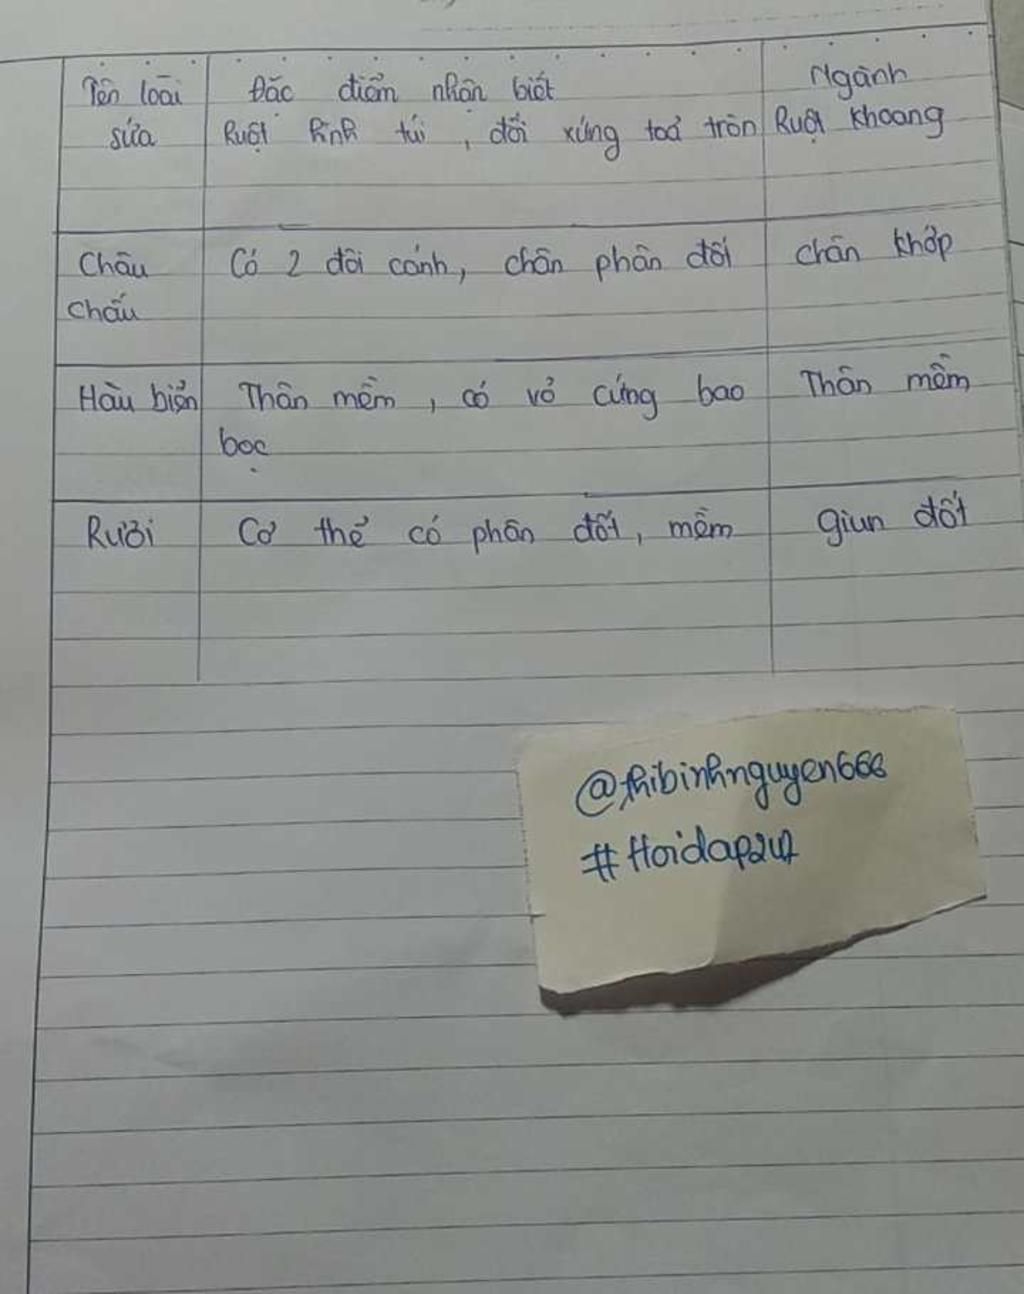 Tên loài Đặc điểm nhận biết Ngành
sứa Ruột hình túi, đối xứng toả tròn Ruột khoang
Châu Có 2 đôi cánh, chân phân đốt chân khớp
chấu
Hàu biển Thân mềm, có vỏ cứng bao Thân mềm
bọc
Rươi Cơ thể có phân đốt, mềm giun đốt
@thibinhnguyen668
#Hoidap247